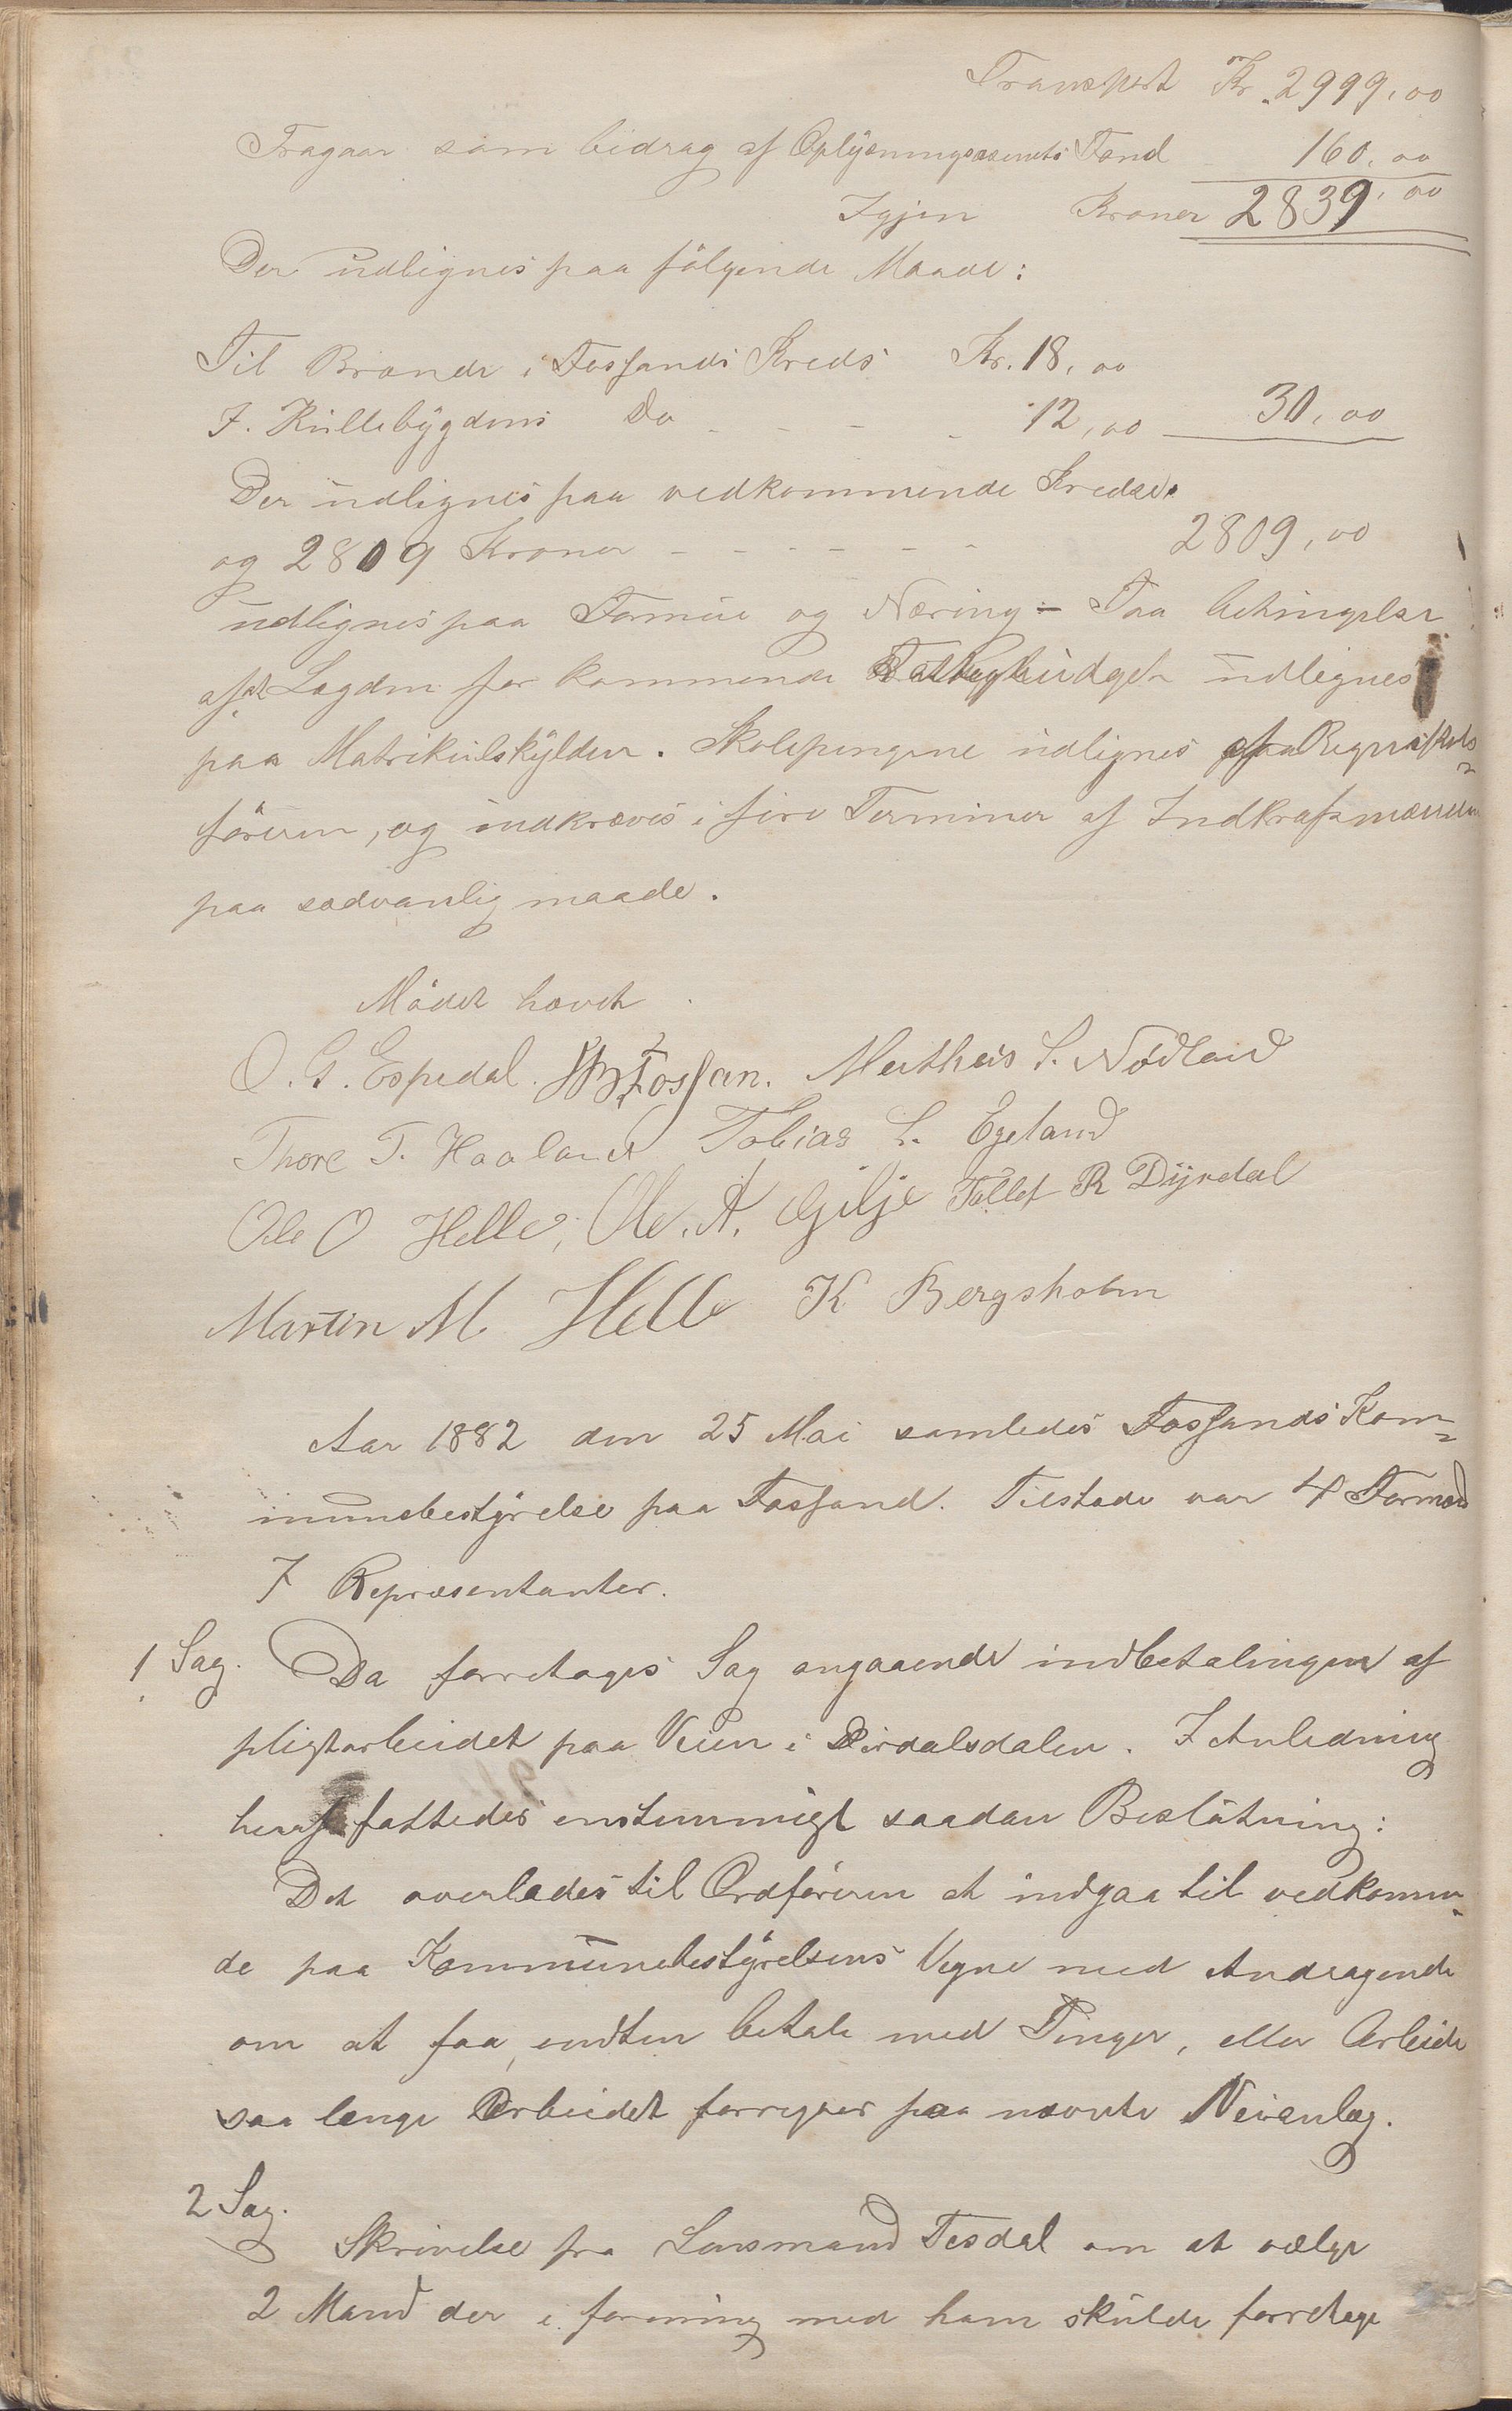 Transport Kr. 2999,00
Fragaar som bidrag af Oplysningsvæsenets Fond 160,00
Igjen Kroner 2839,00
Der udlignes paa følgende Maade:
Til Brænde i Fossands Kreds Kr. 18,00
I. Rullebygdens Do - - - - 12,00 30,00
Der udlignes paa vedkommende Kredse
og 2809 Kroner - - - - - - 2809,00
udlignes paa Formue og Næring - Paa betingelse
af at Lægden for kommende udlignes
paa Matrikulskylden. Skolepengene udlignes af Regnskabs-
føreren, og indkræves i fire Terminer af Indkrafsmændene
paa sædvanlig maade.
Mødet hævet
O. G. Espedal. Fossan. Mathias S. Nødland
Thore T. Haaland Tobias L. Egeland
Ole O Helle, Ole. A. Gilje Tollef R Dyrdal
Martin M. Helle K Bergsholm
Aar 1882 den 25 Mai samledes Fossands Kom-
munebestyrelse paa Fossand. Tilstede var 4 Formænd
7 Repræsentanter.
1 Sag. Da forretages Sag angaaende indbetalingen af
pligtarbeidet paa Veien i Dirdalsdalen. I Anledning
heraf fattedes enstemmigt saadan Beslutning:
Det overlades til Ordføreren at indgaa til vedkommen-
de paa Kommunebestyrelsens Vegne med Andragende
om at faa endten betale med Penger, eller Arbeide
saa længe Arbeidet forregaar paa nævnte Veianlæg.
2 Sag.
Skrivelse fra Lensmand Tesdal om at vælge
2 Mand der i forening med ham skulde forretage